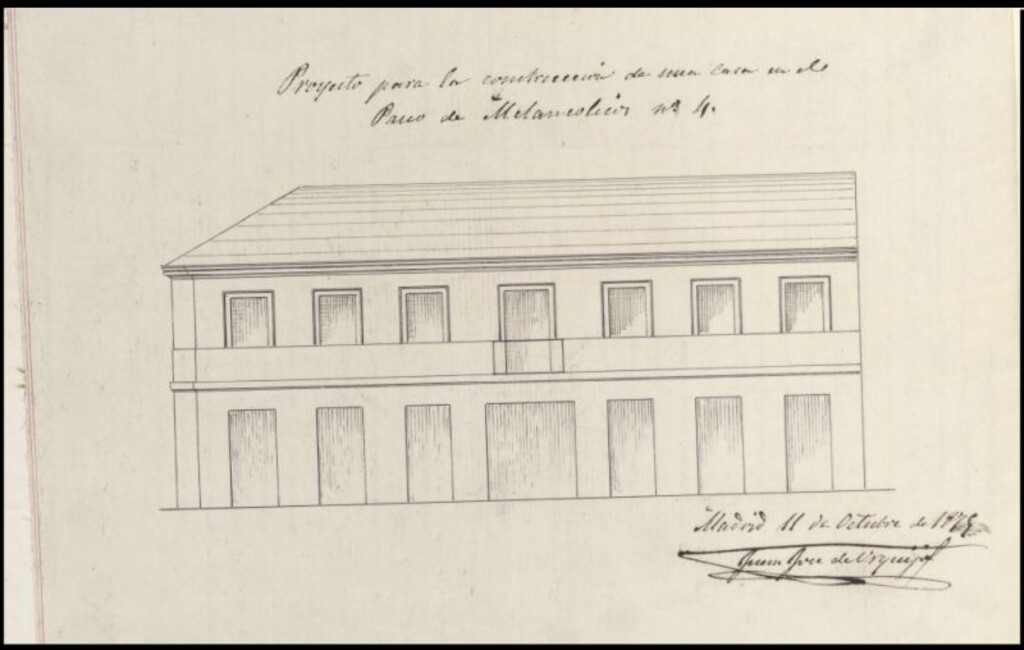 Proyecto para la construccion de una casa en el
Paseo de Melancolicos nº 4.
Madrid 11 de Octubre de 187
Juan José de Urquijo